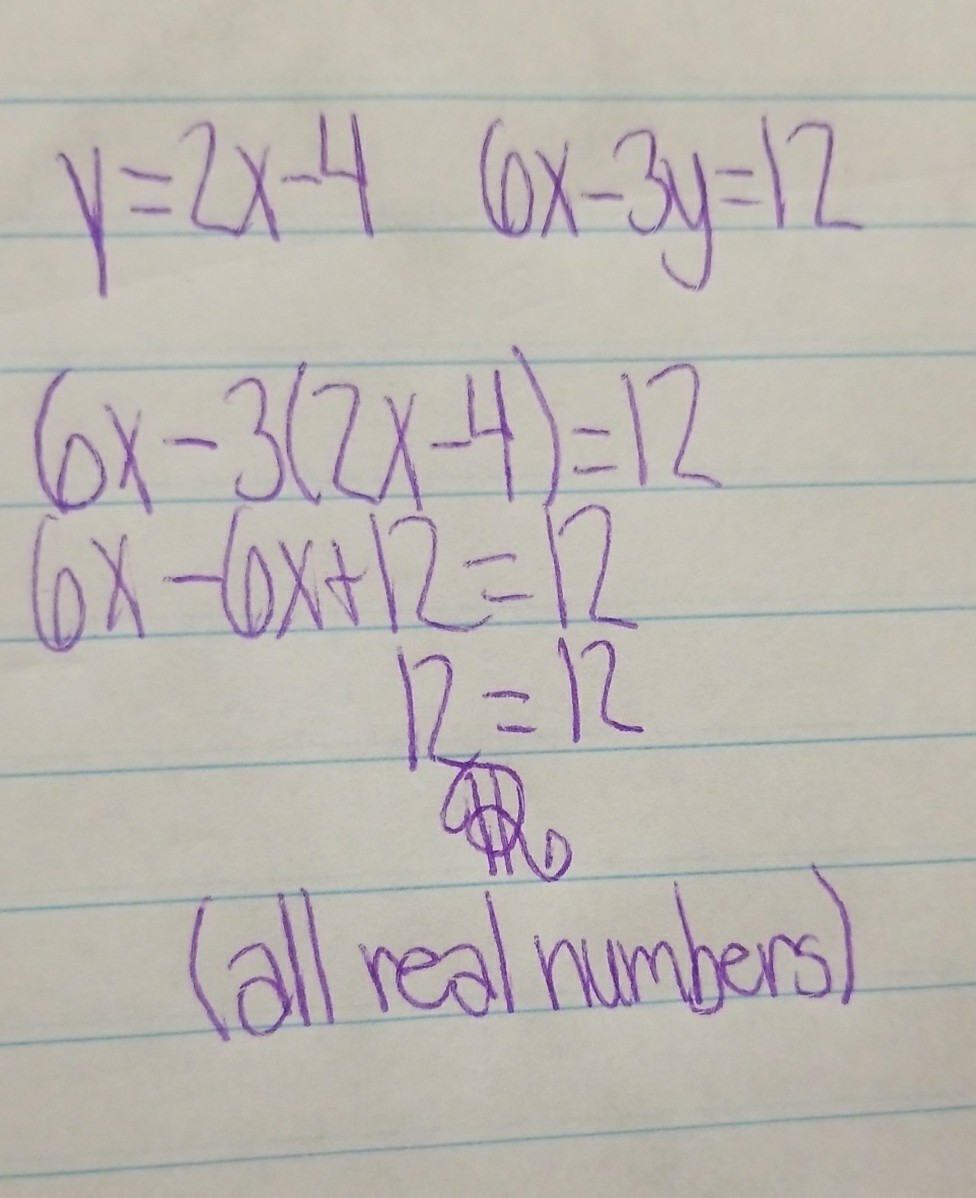 y=2x-4 6x-3y=12
6x-3(2x-4)=12
6x-6x+12=12
12=12
(all real numbers)